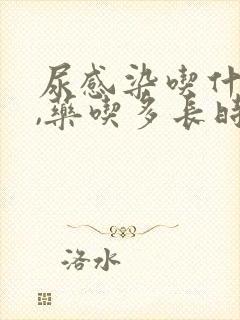 尿感染喫什
,藥喫多長時
洛水